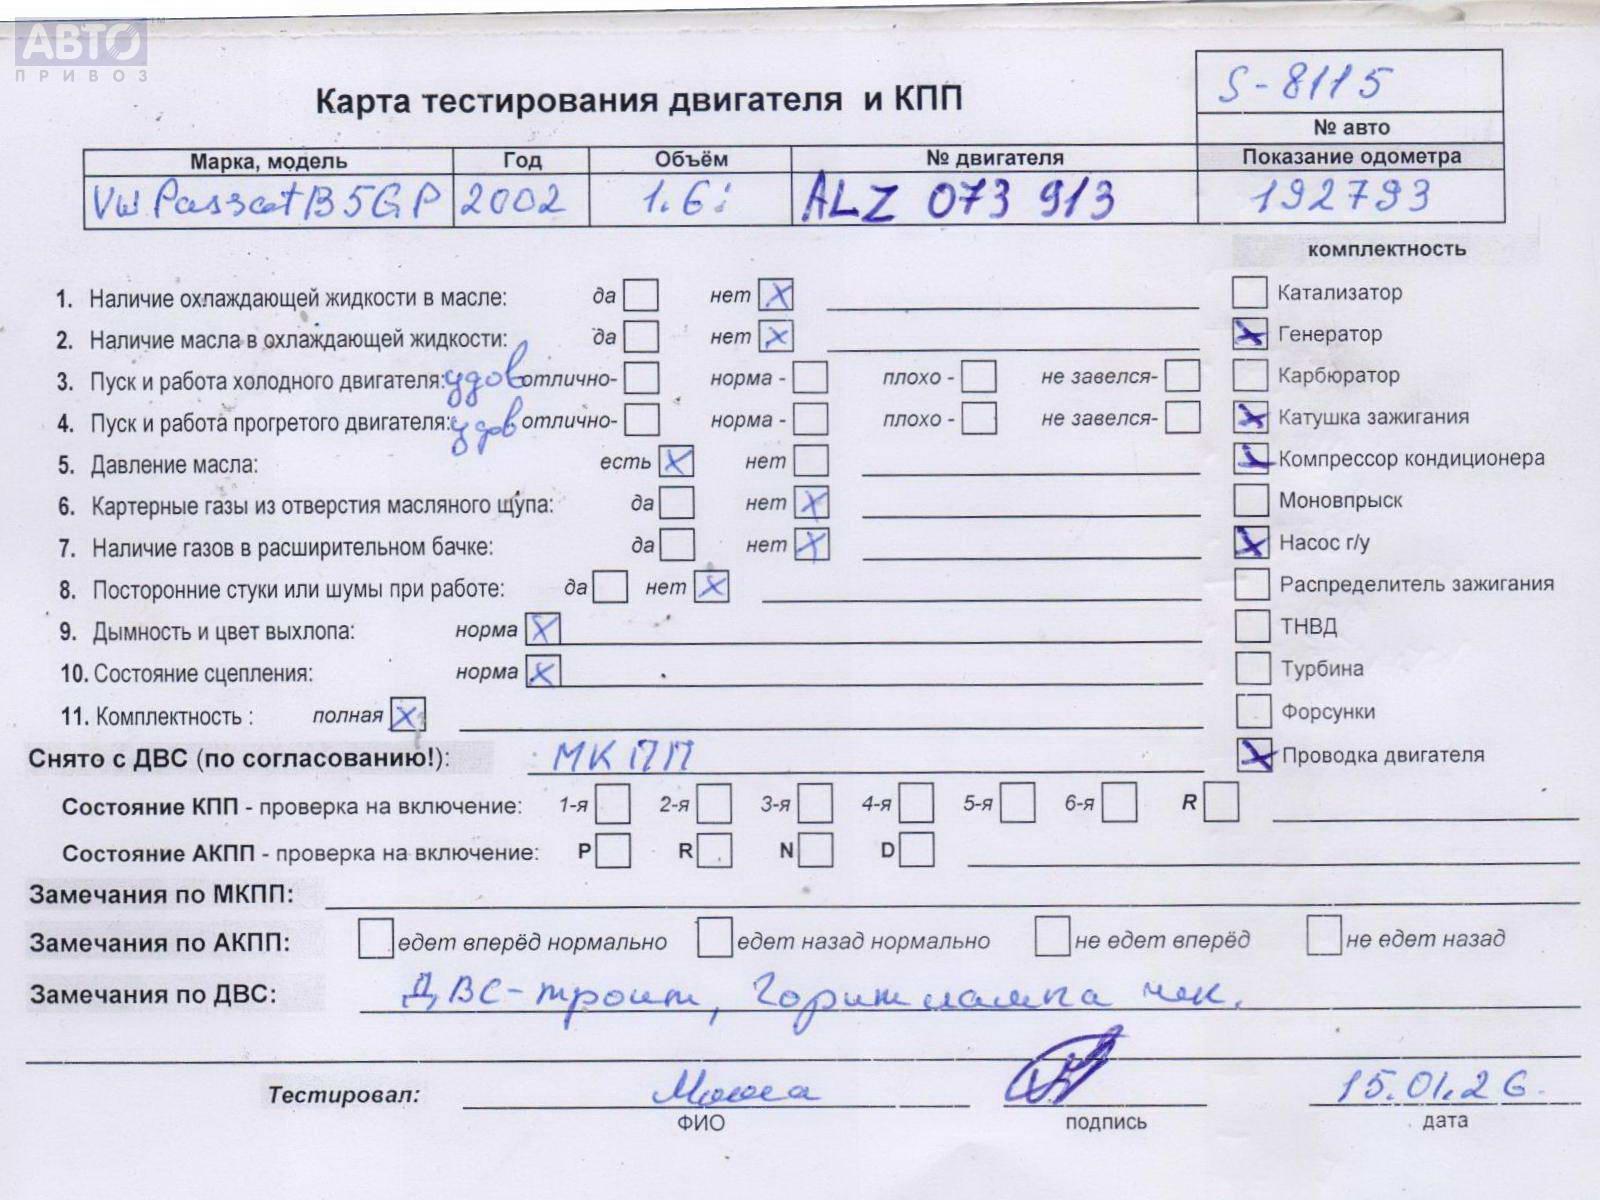 АВТО
ПРИВОЗ
Карта тестирования двигателя и КПП
S-8115
№ авто
Марка, модель Год Объём № двигателя Показание одометра
VW Passat B5GP 2002 1.6i ALZ 073 913 192793
комплектность
1. Наличие охлаждающей жидкости в масле: да нет X
Катализатор
2. Наличие масла в охлаждающей жидкости: да нет X
X Генератор
3. Пуск и работа холодного двигателя: удов отлично- норма - плохо - не завелся-
Карбюратор
4. Пуск и работа прогретого двигателя: удов отлично- норма - плохо - не завелся-
X Катушка зажигания
5. Давление масла: есть X нет
X Компрессор кондиционера
6. Картерные газы из отверстия масляного щупа: да нет X
Моновпрыск
7. Наличие газов в расширительном бачке: да нет X
X Насос г/у
8. Посторонние стуки или шумы при работе: да нет X
Распределитель зажигания
9. Дымность и цвет выхлопа: норма X
ТНВД
10. Состояние сцепления: норма X
Турбина
11. Комплектность : полная X
Форсунки
Снято с ДВС (по согласованию!): МКПП
X Проводка двигателя
Состояние КПП - проверка на включение: 1-я 2-я 3-я 4-я 5-я 6-я R
Состояние АКПП - проверка на включение: P R N D
Замечания по МКПП:
Замечания по АКПП: едет вперёд нормально едет назад нормально не едет вперёд не едет назад
Замечания по ДВС: ДВС-троит, Горит лампа чек.
Тестировал: 15.01.26.
ФИО подпись дата